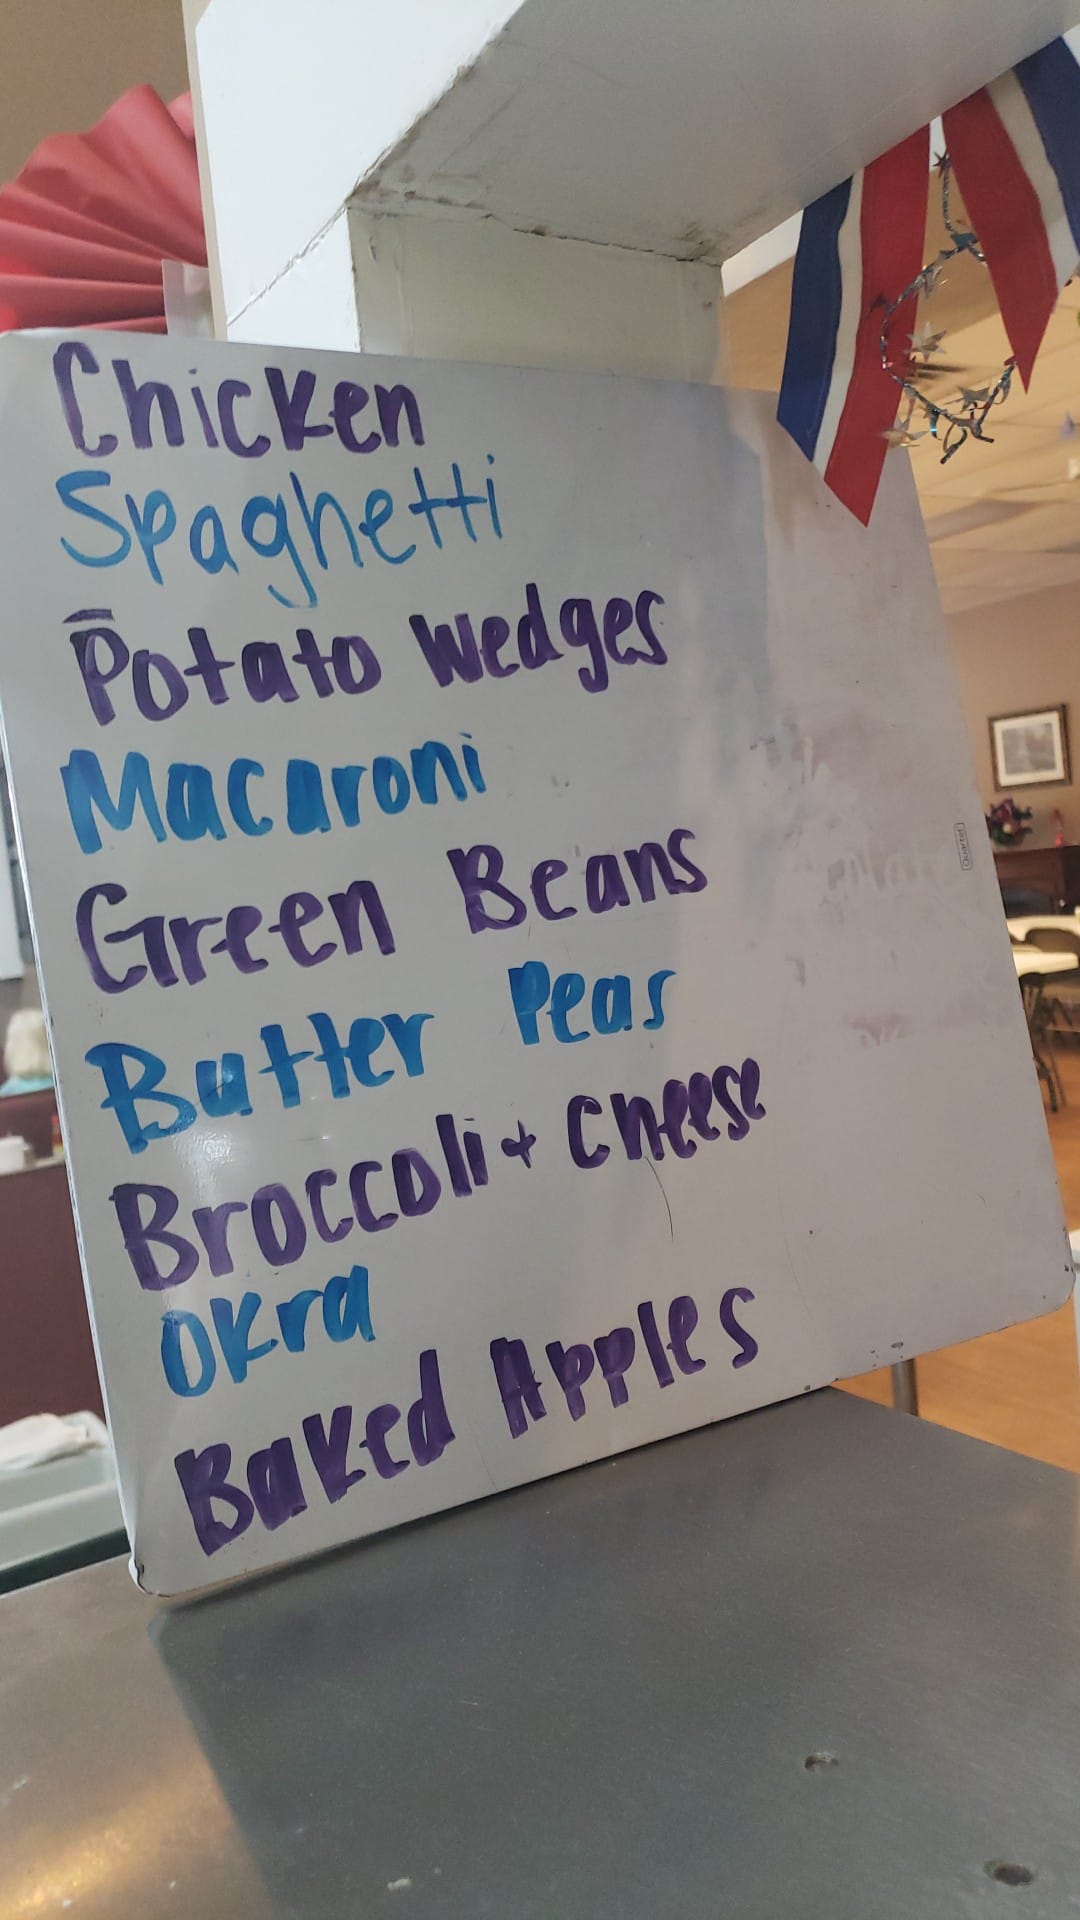 Chicken
Spaghetti
Potato Wedges
Macaroni
Green Beans
Butter Peas
Broccoli + Cheese
Okra
Baked Apples
Quartet